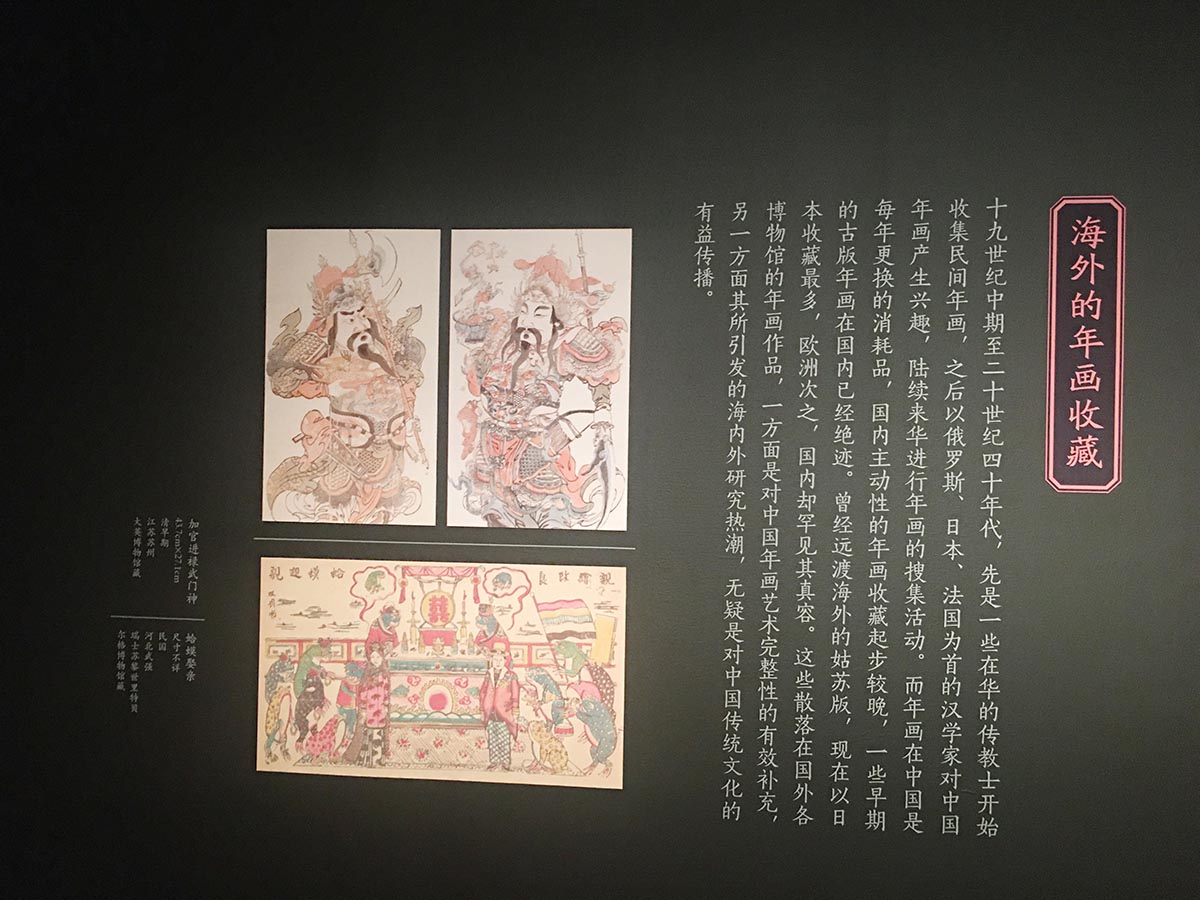 海外的年画收藏
十九世纪中期至二十世纪四十年代，先是一些在华的传教士开始
收集民间年画，之后以俄罗斯、日本、法国为首的汉学家对中国
年画产生兴趣，陆续来华进行年画的搜集活动。而年画在中国是
每年更换的消耗品，国内主动性的年画收藏起步较晚，一些早期
的古版年画在国内已经绝迹。曾经远渡海外的姑苏版，现在以日
本收藏最多，欧洲次之，国内却罕见其真容。这些散落在国外各
博物馆的年画作品，一方面是对中国年画艺术完整性的有效补充，
另一方面其所引发的海内外研究热潮，无疑是对中国传统文化的
有益传播。
改良
蛤蟆娶親
加官进禄武门神
43.7cm×27.1cm
清早期
江苏苏州
大英博物馆藏
蛤蟆娶亲
尺寸不详
民国
河北武强
瑞士苏黎世里特贝
尔格博物馆藏